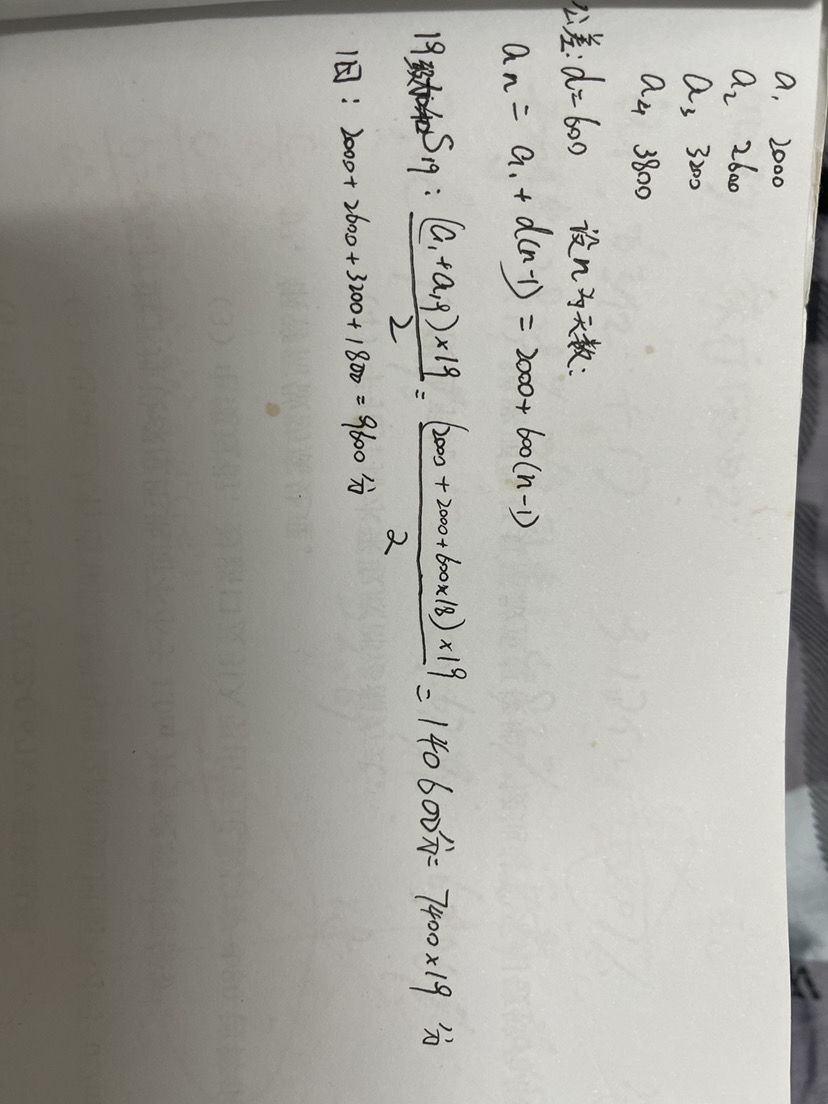 a₁ 2000
a₂ 2600
a₃ 3200
a₄ 3800
公差:d=600 设n为天数:
an = a₁ + d(n-1) = 2000 + 600(n-1)
S₁₉: (a₁+a₁₉)×19 / 2 = (2000+2000+600×18)×19 / 2 = 140600分= 7400×19 分
旧: 2000+2600+3200+1800=9600分